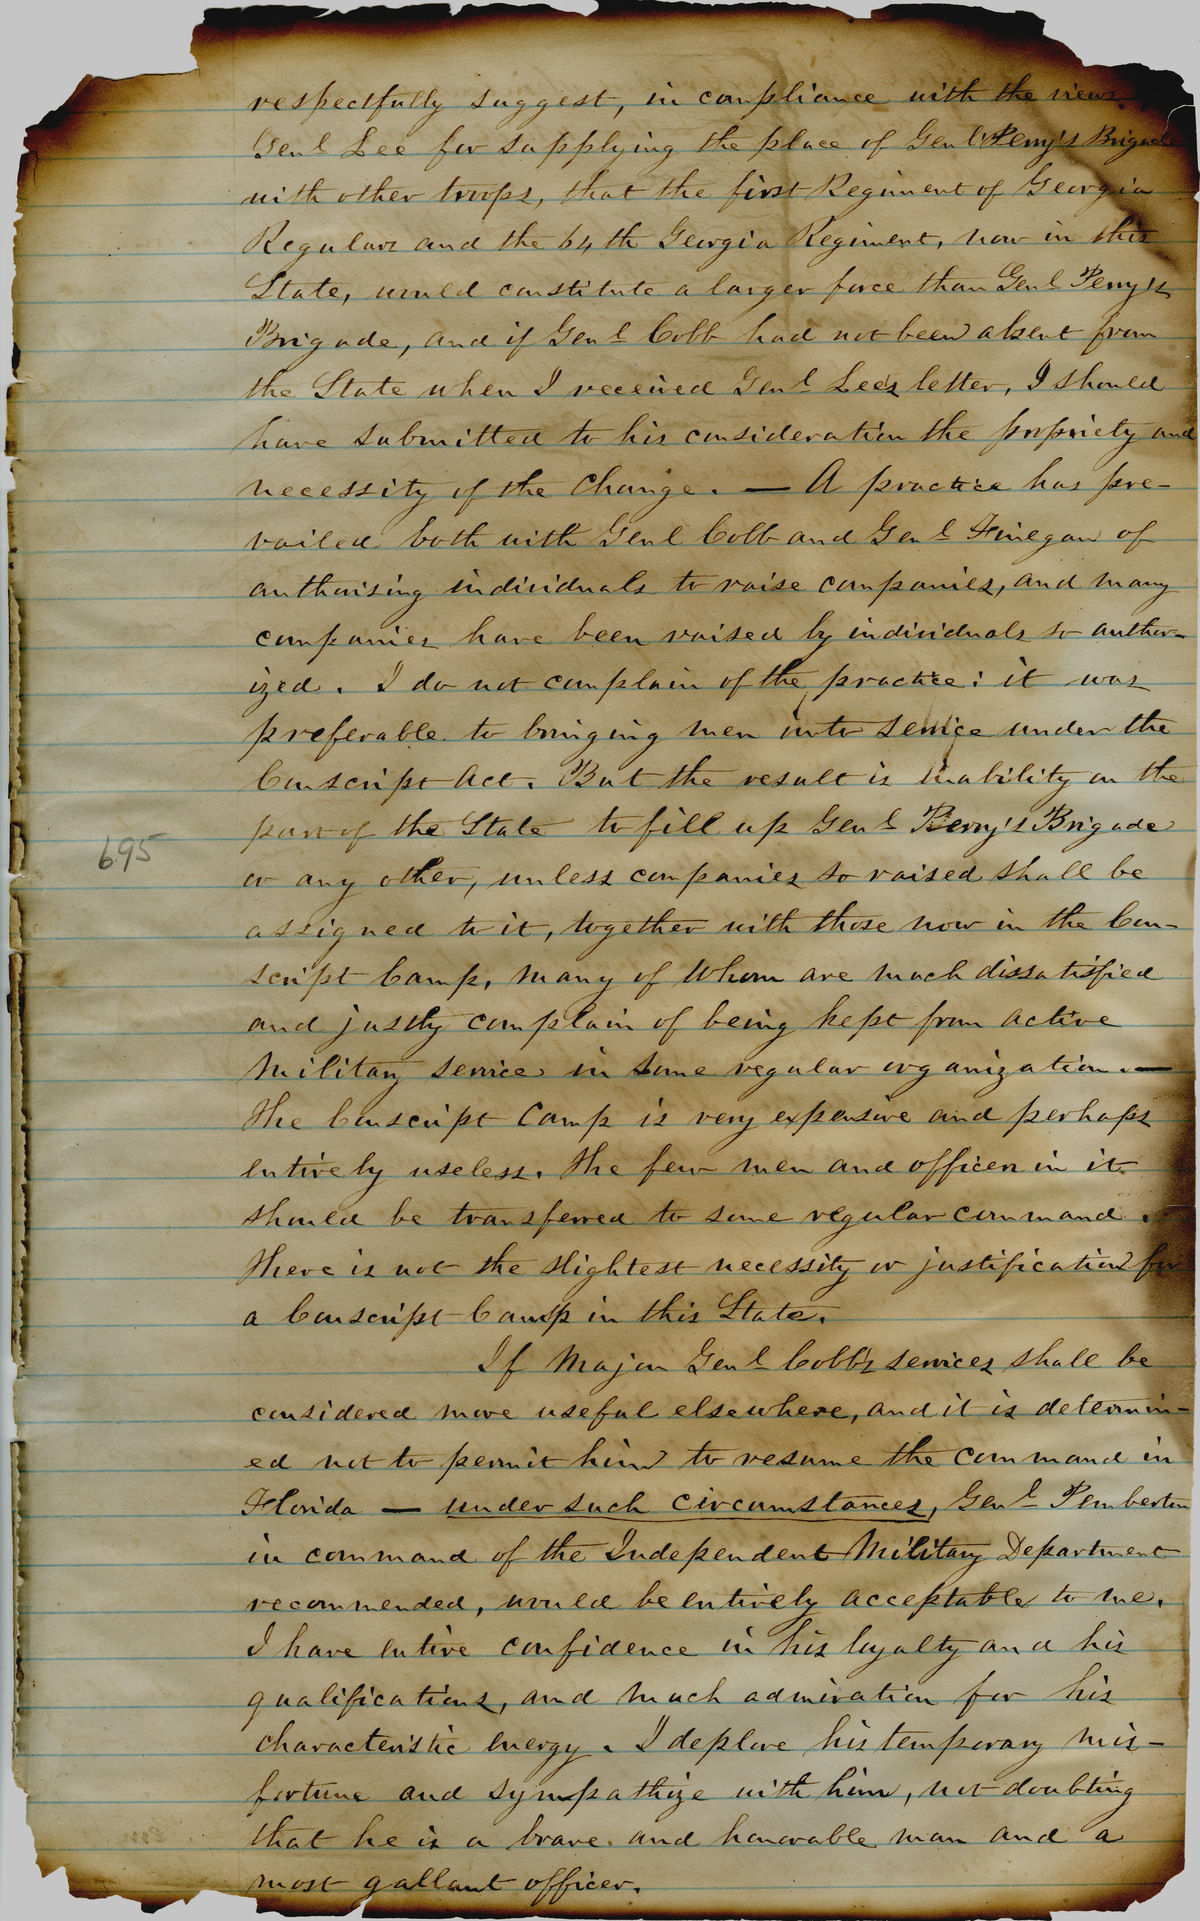 respectfully suggest, in compliance with the views
Genl Lee for supplying the place of Genl Perry's Brigade
with other troops, that the first Regiment of Georgia
Regulars and the 64th Georgia Regiment, now in this
State, would constitute a larger force than Genl Perry's
Brigade, and if Genl Cobb had not been absent from
the State when I received Genl Lee's letter, I should
have submitted to his consideration the propriety and
necessity of the change. — A practice has pre-
vailed both with Genl Cobb and Genl Finegan of
authorising individuals to raise companies, and many
companies have been raised by individuals so author-
ized. I do not complain of the practice: it was
preferable to bringing men into service under the
Conscript Act. But the result is inability on the
part of the State to fill up Genl Perry's Brigade
695
or any other, unless companies so raised shall be
assigned to it, together with those now in the Con-
script Camp, many of whom are much dissatisfied
and justly complain of being kept from active
Military service in some regular organization. —
The Conscript Camp is very expensive and perhaps
entirely useless. The few men and officers in it
should be transferred to some regular command.
There is not the slightest necessity or justification for
a Conscript Camp in this State.
If Major Genl Cobb's services shall be
considered more useful elsewhere, and it is determin-
ed not to permit him to resume the command in
Florida — under such circumstances, Genl Pemberton
in command of the Independent Military Department
recommended, would be entirely acceptable to me.
I have entire confidence in his loyalty and his
qualifications, and much admiration for his
characteristic energy. I deplore his temporary mis-
fortune and sympathize with him, not doubting
that he is a brave and honorable man and a
most gallant officer.